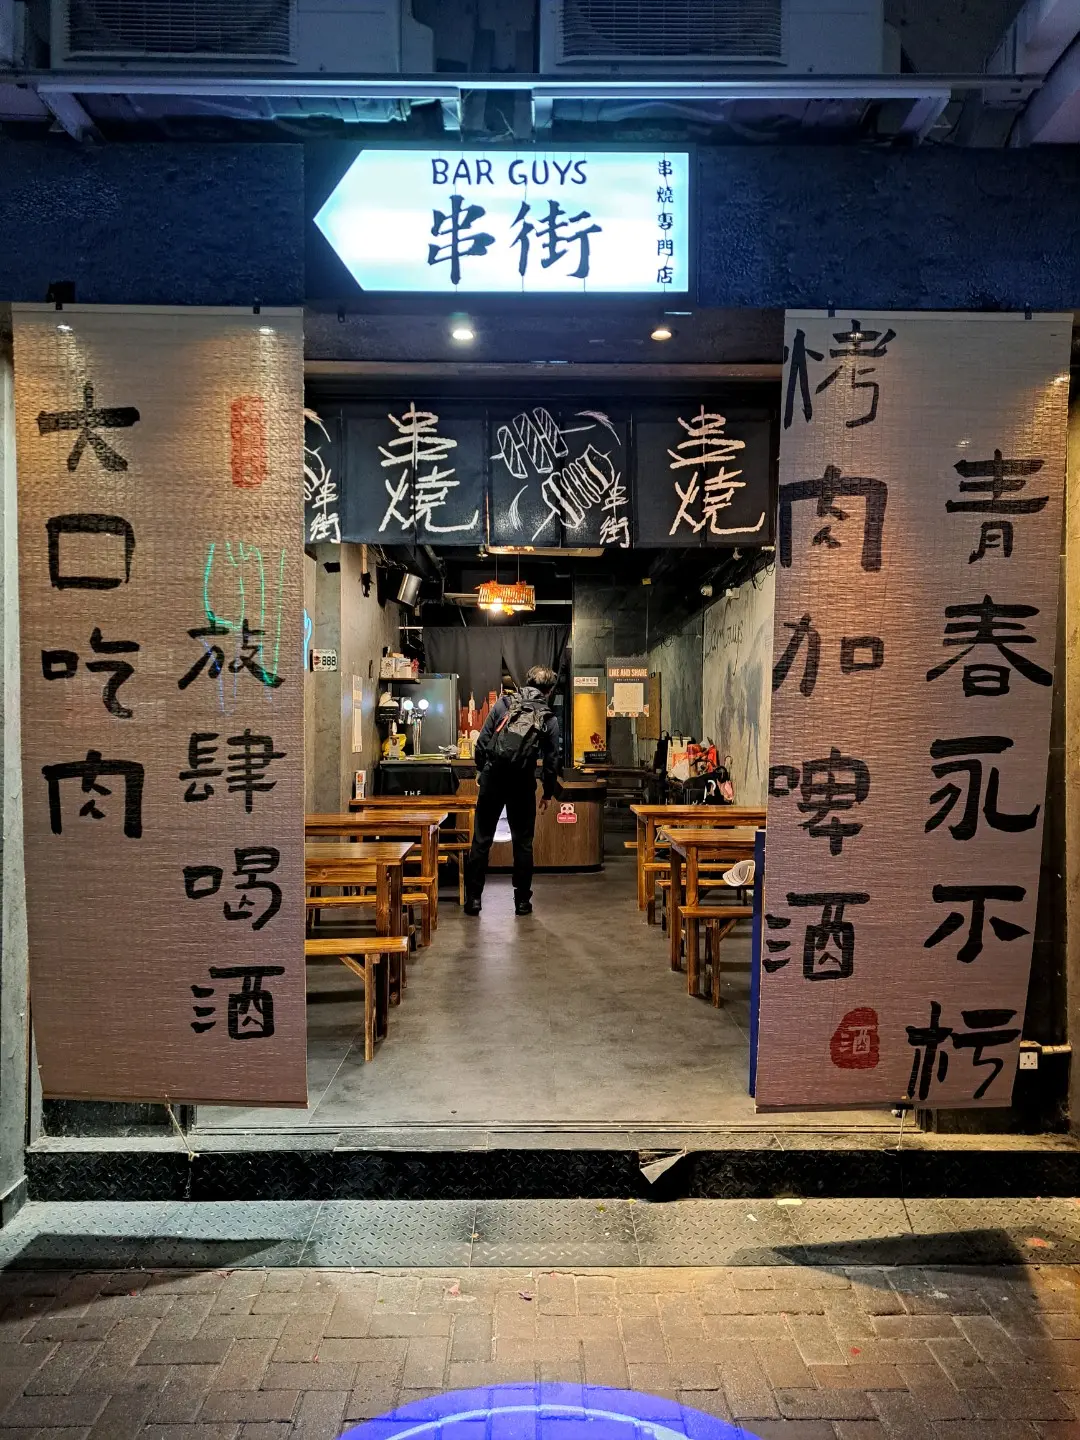 BAR GUYS
串街
串燒專門店
串燒
串街
串燒
串街
大口吃肉
放肆喝酒
烤肉加啤酒
青春永不朽
酒
888
LIKE AND SHARE
THE